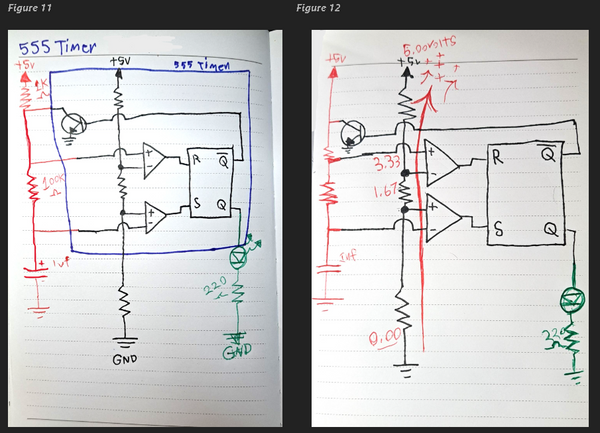 Figure 11
555 Timer
+5V
+5V
555 Timer
1K
Ω
+
-
R
Q
100K
Ω
+
-
S
Q
+ 1uf
220
Ω
GND
GND
Figure 12
5.00volts
+5V
+5V
+
-
R
Q
3.33
1.67
+
-
S
Q
1uf
Ω
0.00